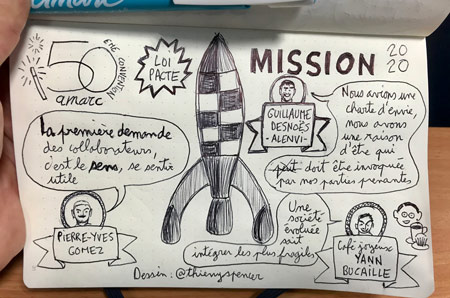 amarc
50
ÈME CONVENTION
amarc
LOI
PACTE
MISSION
20
20
GUILLAUME
DESNOËS
- ALENVI -
Nous avions une
charte d'envie,
nous avons
une raison
d'être qui
peut doit être invoquée
par nos parties prenantes
La première demande
des collaborateurs,
c'est le sens, se sentir
utile
PIERRE-YVES
GOMEZ
Une
société
évoluée
sait
intégrer les plus fragiles
Café joyeux
YANN
BUCAILLE
Dessin : @thierryspencer